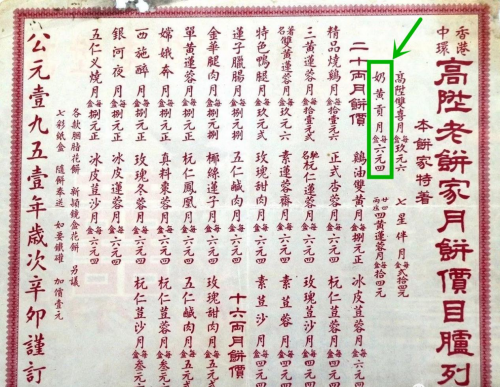 香港中環
高陞老餅家月餅價目臚列
本餅家特著
高陞雙喜月 每盒玖元六
七星伴月 每盒弍拾四元
奶黃貢月 每盒六元四
廿四兩庄 四黃蓮蓉月 每盒拾四元
二十兩月餅價 鷄油雙黃月 每盒捌元正 冰皮荳蓉月 每盒
精品燒鷄月 每盒拾壹元六 正式杏蓉月 每盒六元四 杬仁荳蓉月 每盒
三黃蓮蓉月 每盒拾壹元弍 馳名杬仁蓮蓉月 每盒六元四 杬仁
著名雙黃蓮蓉月 每盒玖元六 素蓮蓉齋月 每盒六元四 素荳蓉月 每盒四元
特色鴨腿月 每盒玖元弍 玫瑰甜肉月 每盒六元四 素荳沙月 每盒四元
蓮子臘腸月 每盒捌元正 五仁鹹肉月 每盒六元四 十六兩月餅價
金華腿肉月 每盒捌元正 椰絲蓮子月 每盒六元四 玫瑰甜肉月 每盒四元
單黃蓮蓉月 每盒捌元正 杬仁鳳凰月 每盒六元四 五仁鹹肉月 每盒
嫦娥奔月 每盒捌元正 真料棗蓉月 每盒六元四 杬仁荳沙月 每盒叁元
西施醉月 每盒捌元正 玫瑰冬蓉月 每盒六元四
銀河夜月 每盒捌元正 冰皮蓮蓉月 每盒六元四
五仁叉燒月 每盒捌元正 冰皮荳沙月 每盒六元四
各款胭脂花餅 新頴鏡盒花餅 另議
七彩紙盒 隨餅奉送 如要鐵罐 加補壹元
公元壹九五壹年歲次辛卯謹訂